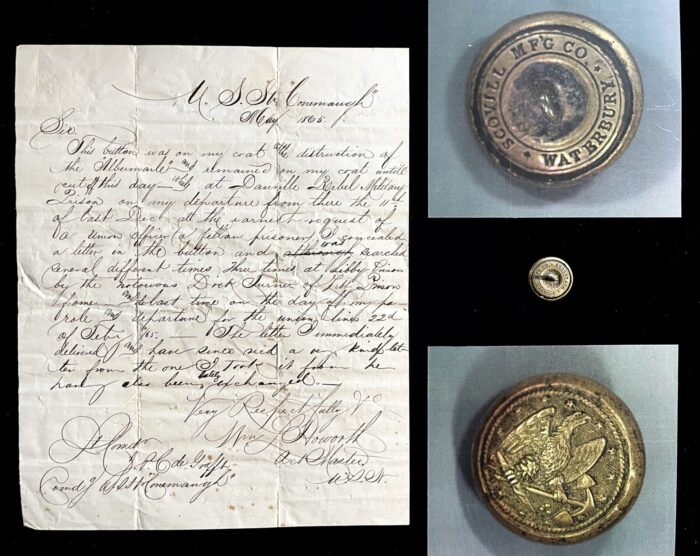 U. S. Str "Conemaugh"
May 1865.
Sir
This button was on my coat at the distruction of
the "Albermarle" and remained on my coat untill
cut off this day — while at Danville Rebel Military
Prison on my departure from there the 11th
of last Dec. at the earnest request of
a union officer (a fellow prisoner) I concealed
a letter in the button and was searched
several different times, three times at Libby Prison
by the notorious Dock Turner of Libby Prison
fame — and last time on the day of my pa
role and departure for the union lines 22d
of Febry /65. — The letter I immediately
delived and have since recd a very kind let-
ter from the one I took it from he
having also been lately exchanged. —
Very Respectfully Yr
Wm L. Howorth
Act Master
U.S.N.
Lt Comdr
J. P. C de Krafft
comdg U.S.S "Conemaugh"
SCOVILL MF'G CO.
* WATERBURY *